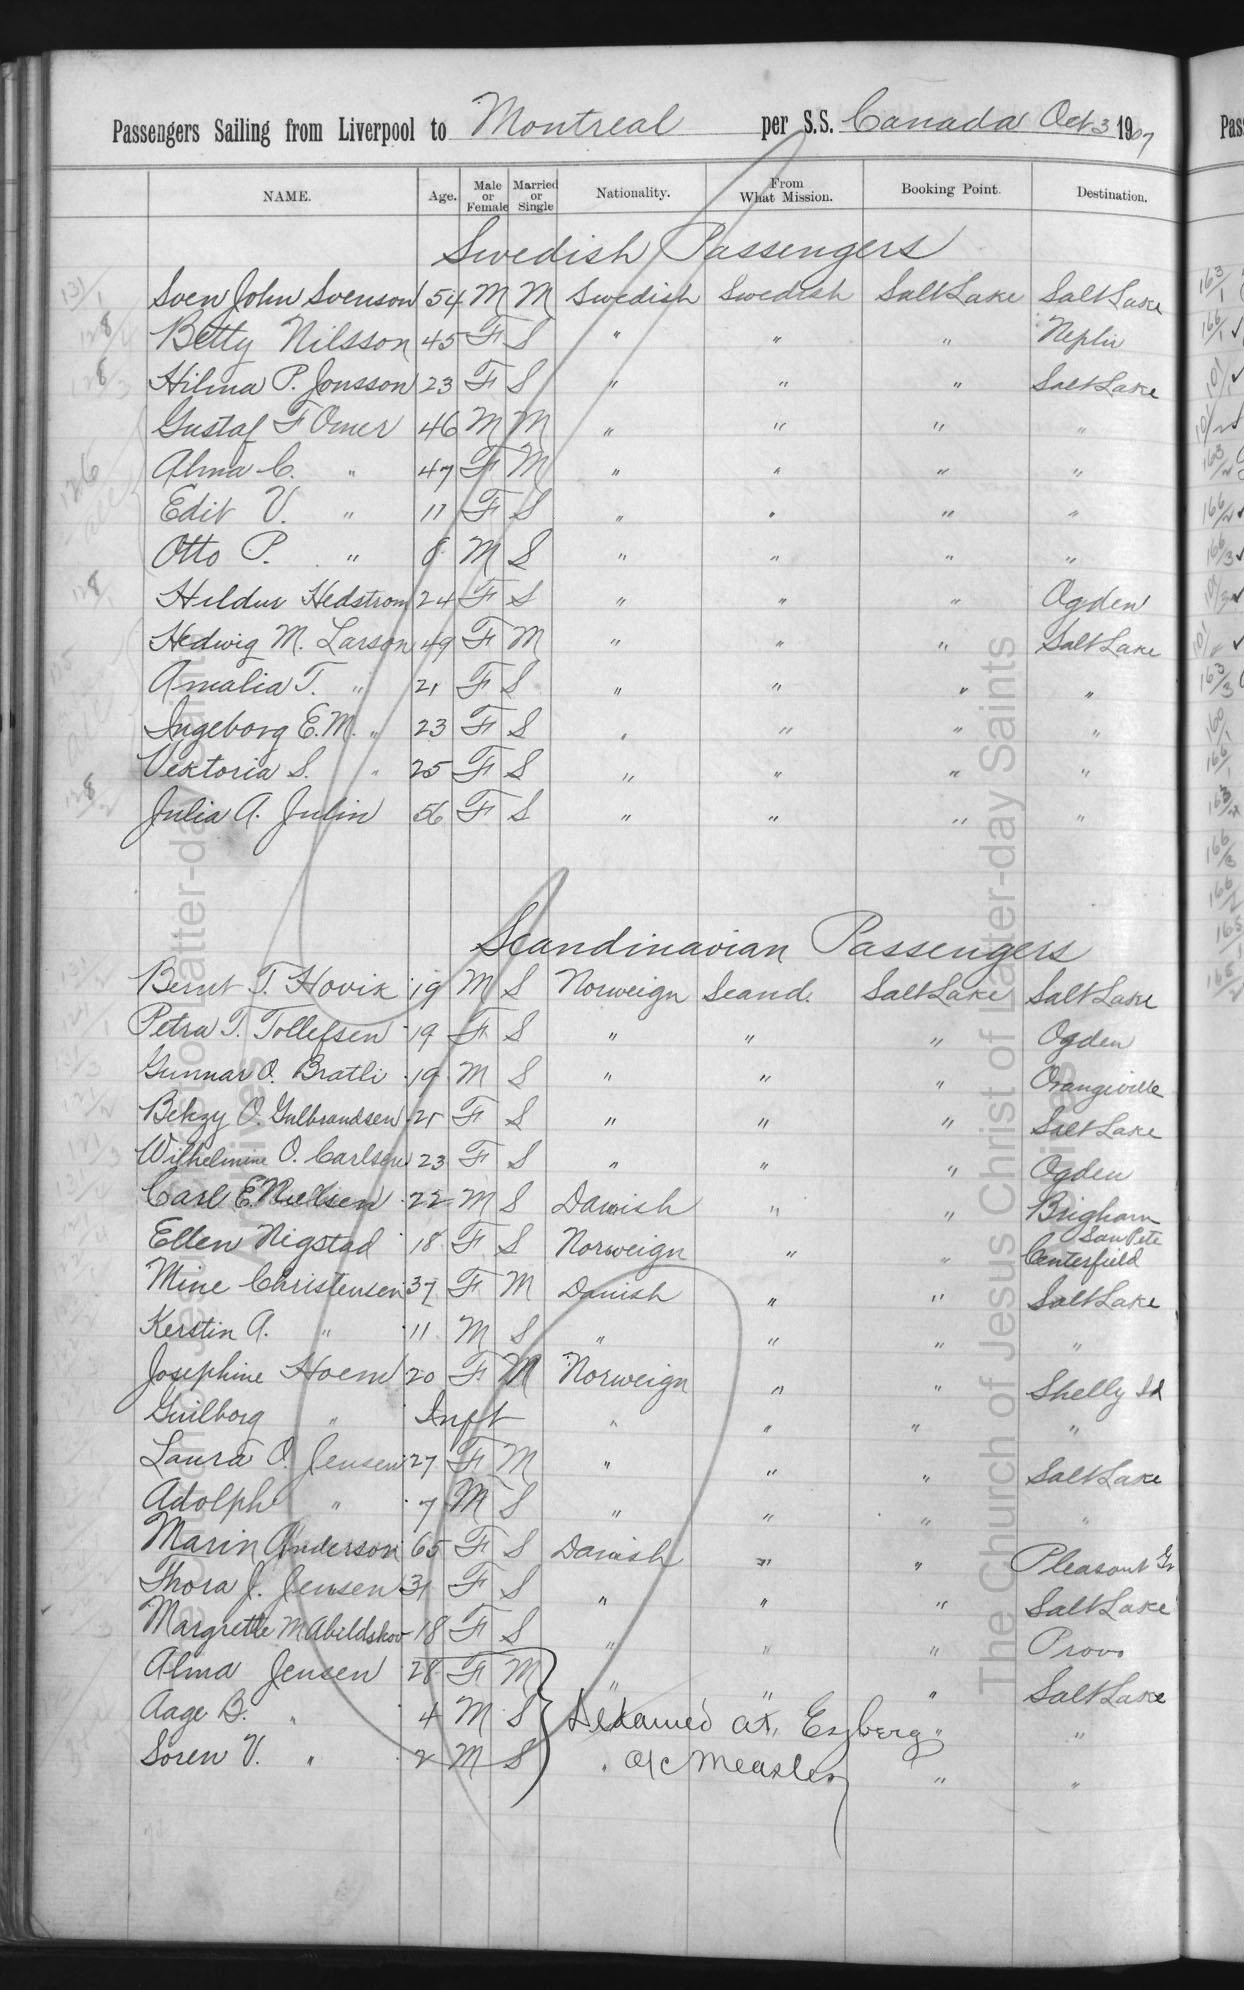 Passengers Sailing from Liverpool to Montreal per S.S. Canada Oct 3 1907
NAME. Age. Male or Female Married or Single Nationality. From What Mission. Booking Point. Destination.
Swedish Passengers
Sven John Svenson 54 M M Swedish Swedish Salt Lake Salt Lake
Betty Nilsson 45 F S " " " Nephi
Hilma P. Jonsson 23 F S " " " Salt Lake
Gustaf F Omer 46 M M " " " "
Alma C. " 47 F M " " " "
Edit V. " 11 F S " " " "
Otto P. " 8 M S " " " "
Hildur Hedstrom 24 F S " " " Ogden
Hedwig M. Larson 49 F M " " " Salt Lake
Amalia T. " 21 F S " " " "
Ingeborg E.M. " 23 F S " " " "
Viktoria S. " 25 F S " " " "
Julia A. Julin 56 F S " " " "
Scandinavian Passengers
Bernt T. Hovik 19 M S Norweign Scand. Salt Lake Salt Lake
Petra T. Tollefsen 19 F S " " " Ogden
Gunnar O. Bratli 19 M S " " " Orangeville
Betzy O. Gulbrandsen 21 F S " " " Salt Lake
Wilhelmine O. Carlsen 23 F S " " " Ogden
Carl E. Nielsen 22 M S Danish " " Brigham
Ellen Nigstad 18 F S Norweign " " Centerfield San Pete
Mine Christensen 37 F M Danish " " Salt Lake
Kerstin A. " 11 M S " " " "
Josephine Hoem 20 F M Norweign " " Shelly Id
Guilborg " Inft " " " "
Laura O. Jensen 27 F M " " " Salt Lake
Adolph " 7 M S " " " "
Marin Anderson 65 F S Danish " " Pleasant Gr
Thora J. Jensen 31 F S " " " Salt Lake
Margrethe M Abildskov 18 F S " " " Provo
Alma Jensen 28 F M " " " Salt Lake
Aage B. " 4 M S Detained at Esberg " "
Soren V. " 2 M S a/c Measles " "
The Church of Jesus Christ of Latter-day Saints